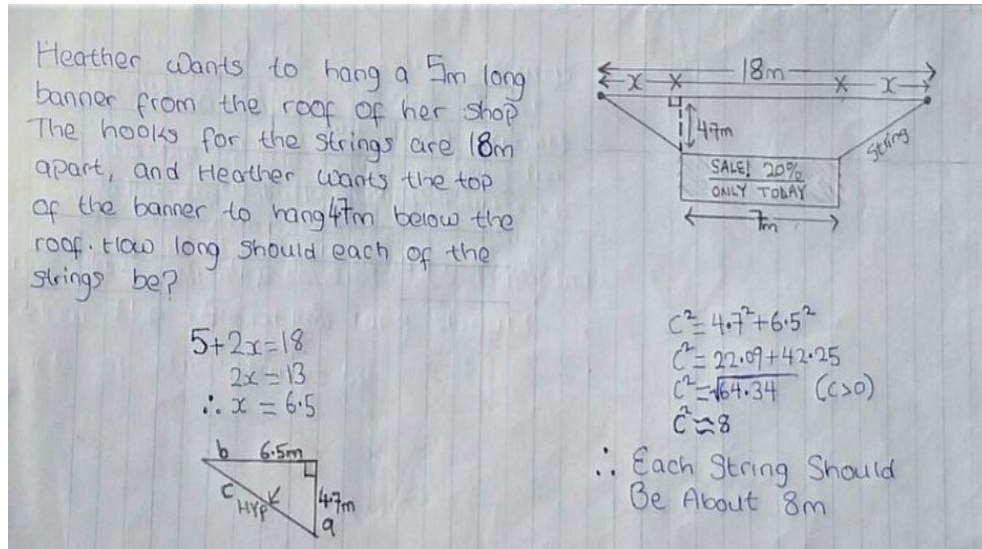 Heather wants to hang a 5m long
banner from the roof of her shop
The hooks for the strings are 18m
apart, and Heather wants the top
of the banner to hang 4.7m below the
roof. How long should each of the
strings be?
18m
x x x x
4.7m
String
SALE! 20%
ONLY TODAY
7m
5+2x=18
2x=13
∴ x = 6.5
b 6.5m
c HYP
4.7m
a
C²= 4.7²+6.5²
C²= 22.09+42.25
C²=√64.34 (C>0)
C²≈8
∴ Each String Should
Be About 8m